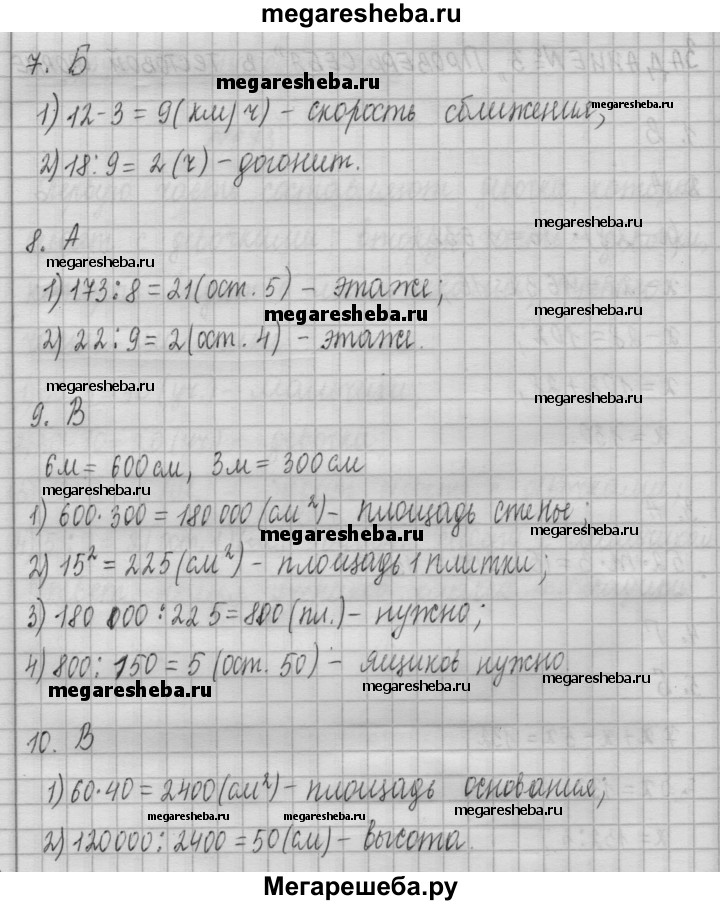 megaresheba.ru
7. Б
megaresheba.ru
1) 12-3 = 9(км/ч) - скорость сближения;
megaresheba.ru
2) 18:9 = 2 (ч) - догонит.
megaresheba.ru
8. А
megaresheba.ru
1) 173:8 = 21(ост. 5) - этажи;
megaresheba.ru
2) 22:9 = 2(ост. 4) - этажи.
megaresheba.ru
megaresheba.ru
9. В
6м = 600см, 3м = 300см
megaresheba.ru
1) 600·300 = 180 000 (см²) - площадь стены;
megaresheba.ru
megaresheba.ru
2) 15² = 225 (см²) - площадь 1 плитки;
3) 180 000 : 225 = 800 (пл.) - нужно;
4) 800 : 150 = 5 (ост. 50) - ящиков нужно.
megaresheba.ru
megaresheba.ru
megaresheba.ru
10. В
1) 60·40 = 2400 (см²) - площадь основания;
megaresheba.ru
megaresheba.ru
megaresheba.ru
2) 120000 : 2400 = 50 (см) - высота.
megaresheba.ru
Мегарешеба.ру